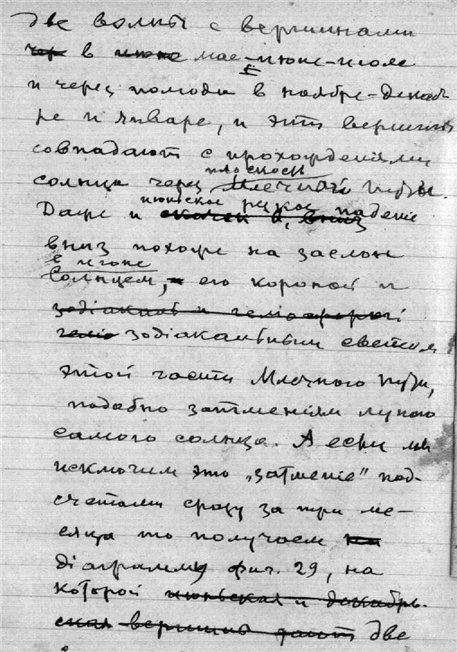 две волны с вершинами
чер в июне мае-июне-июле
и через полгода в ноябре-декаб
ре и январе, и эти вершины
совпадают с прохожденіями
плоскость
солнца через Млечнаго пути.
июньское резкое паденіе
Даже и скачек а, вниз
вниз похоже на заслон
в июне
солнцем, его короной и
зодіакаль и
геліо зодіакальным светом
этой части Млечного пути,
подобно затменіям луною
самого солнца. А если мы
исключим это „затменіе" под-
счетами сразу за три ме-
сяца то получаем
діаграмму фиг. 29, на
которой июньская и декабрь-
ская вершина дают две